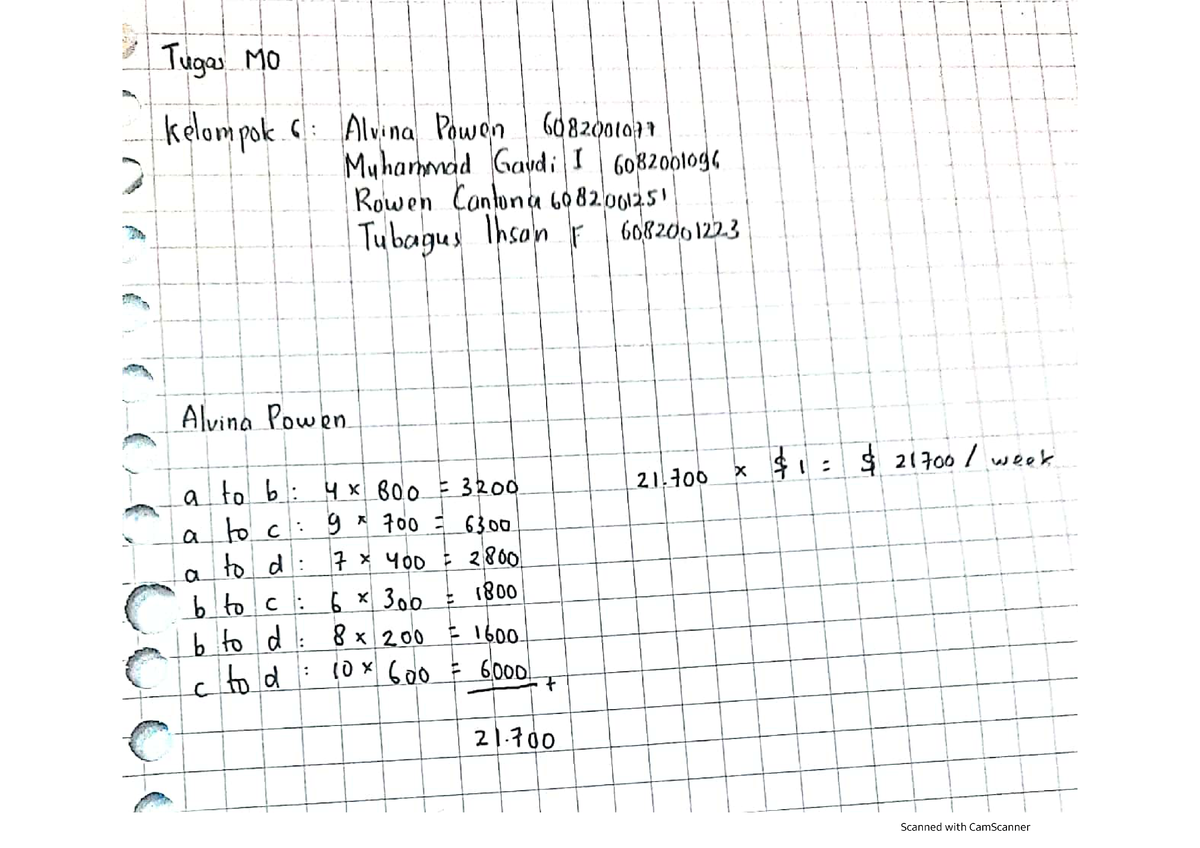 Tugas MO
Kelompok 6: Alvina Powen 6082001077
Muhammad Gavdi I 6082001096
Rowen Cantona 6082001251
Tubagus Ihsan F 6082001223
Alvina Powen
a to b : 4 x 800 = 3200
21.700 x $1 = $ 21700 / week
a to c : 9 x 700 = 6300
a to d : 7 x 400 = 2800
b to c : 6 x 300 = 1800
b to d : 8 x 200 = 1600
c to d : 10 x 600 = 6000 +
21.700
Scanned with CamScanner